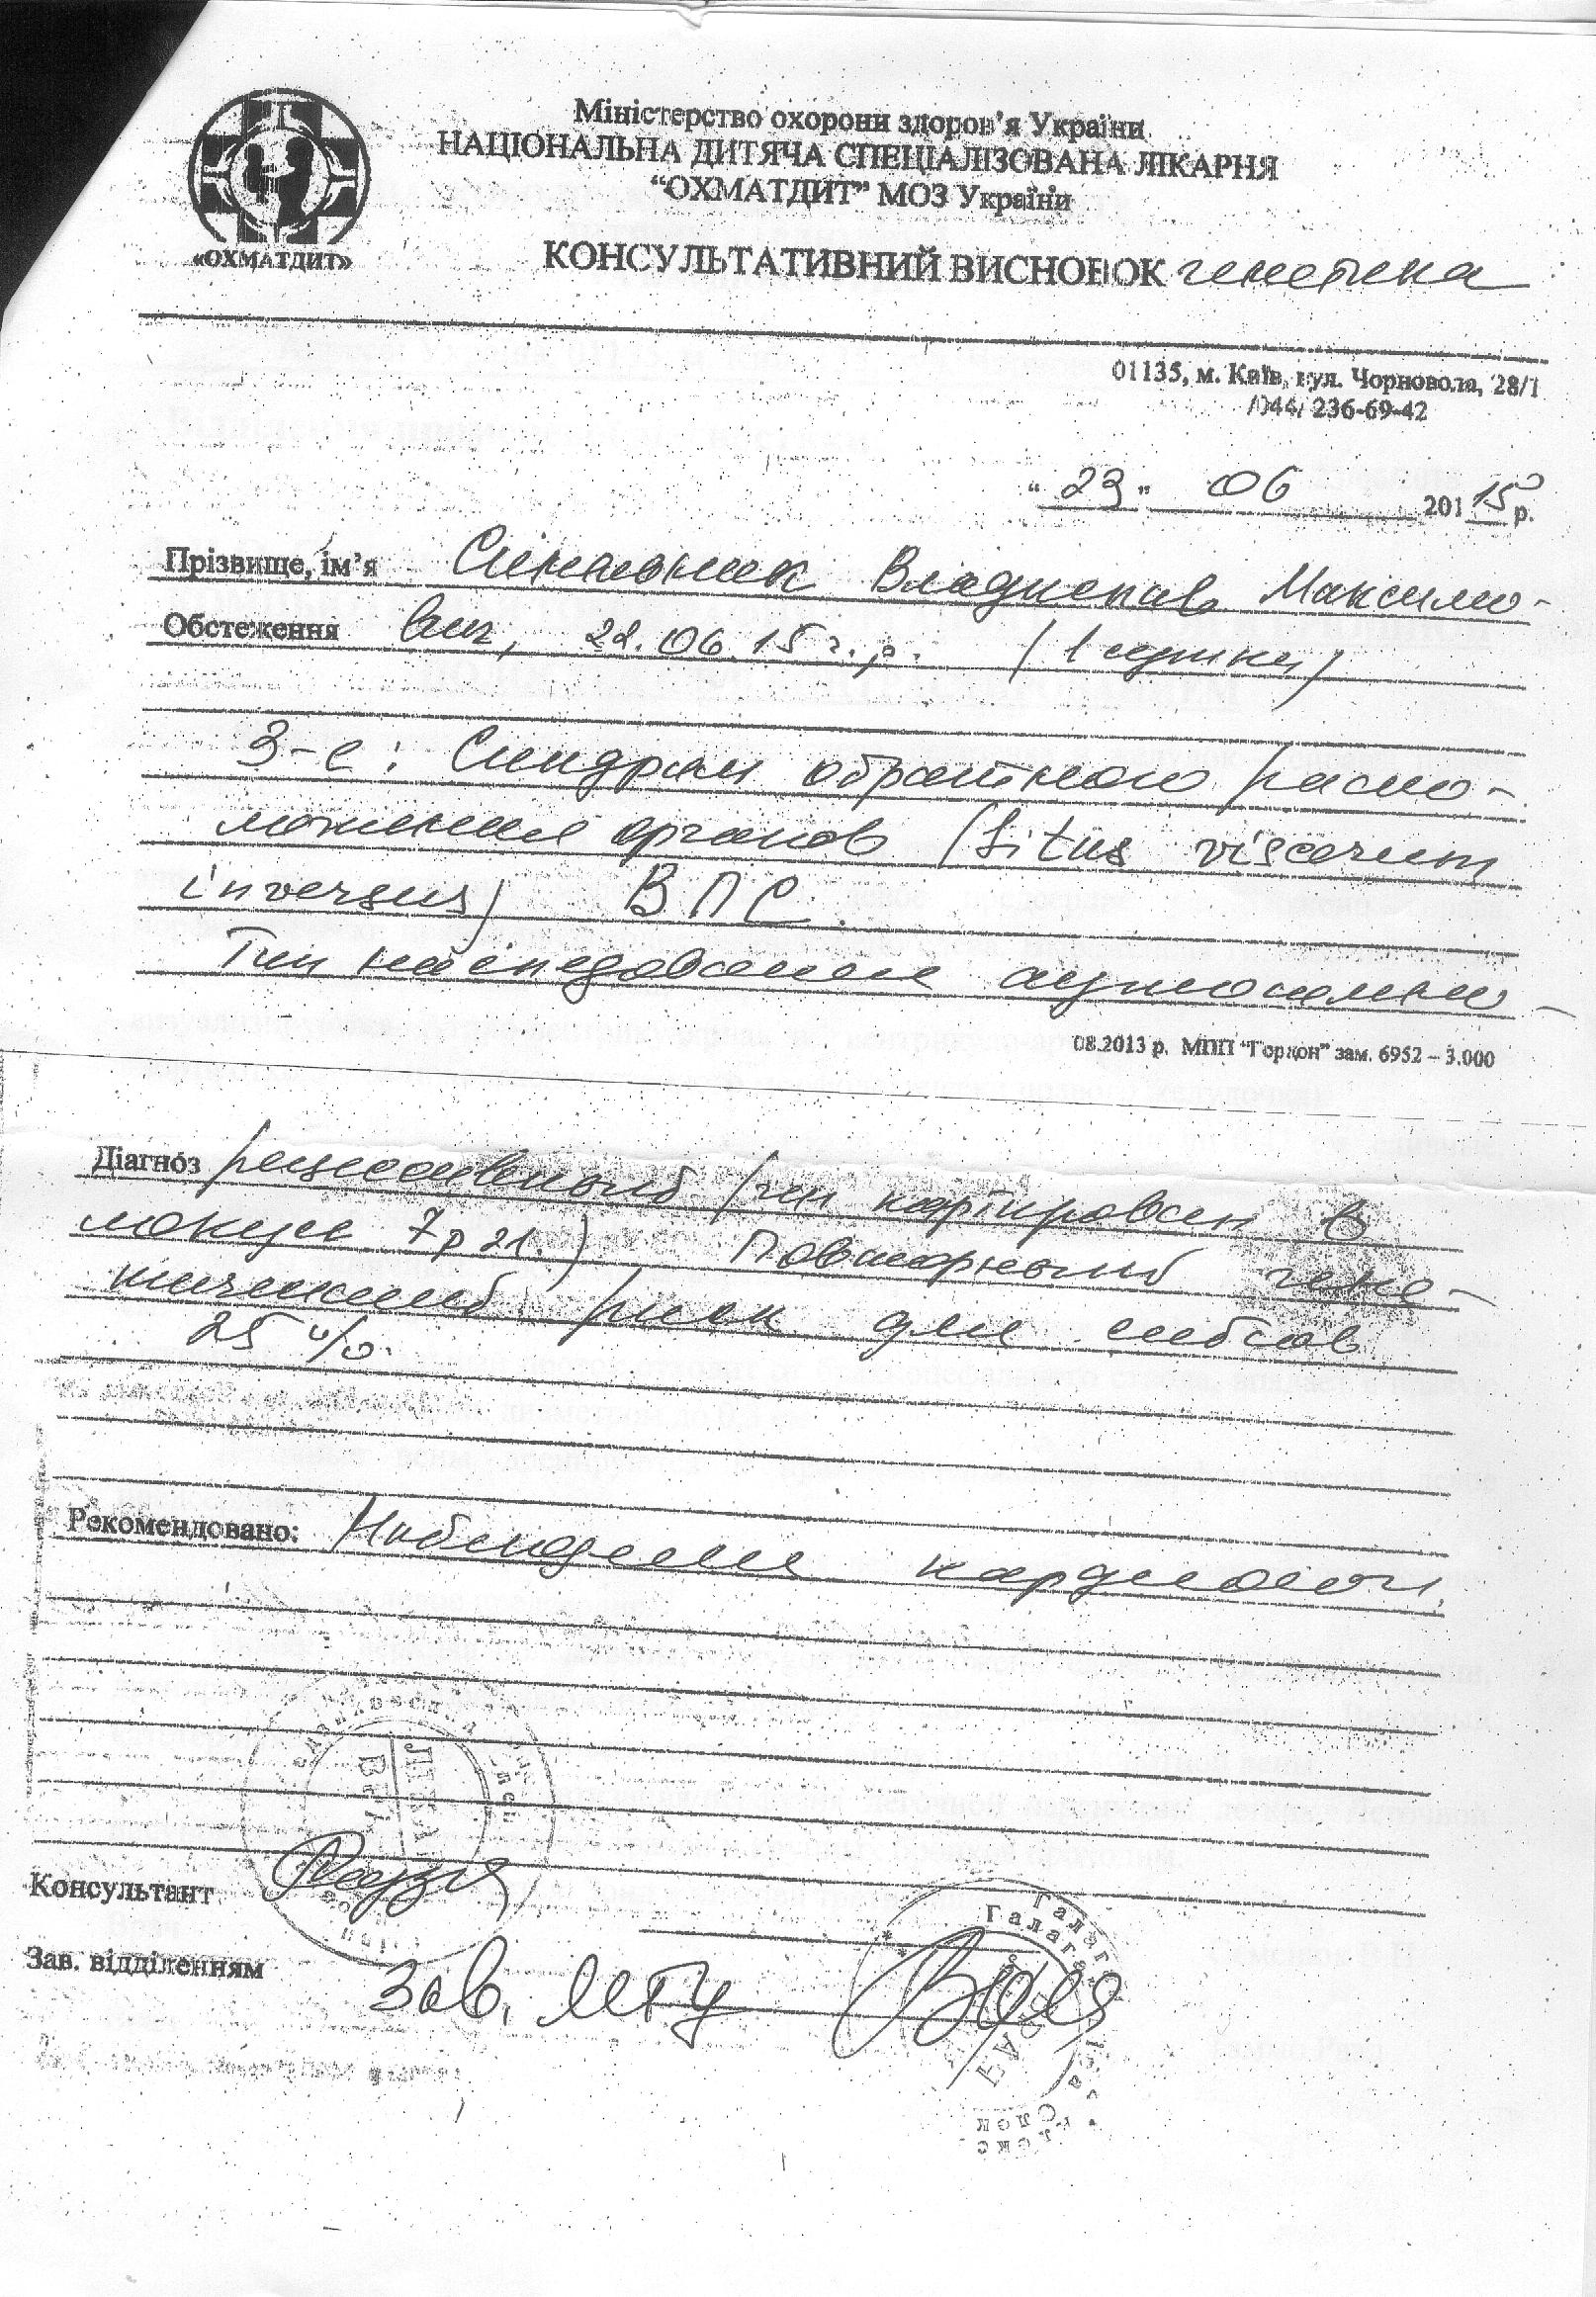 Міністерство охорони здоров'я України
НАЦІОНАЛЬНА ДИТЯЧА СПЕЦІАЛІЗОВАНА ЛІКАРНЯ
“ОХМАТДИТ” МОЗ України
«ОХМАТДИТ»
КОНСУЛЬТАТИВНИЙ ВИСНОВОК генетика
01135, м. Київ, вул. Чорновола, 28/1
/044/ 236-69-42
“ 23 ” 06 2015 р.
Прізвище, ім'я Владислав Максимо-
Обстеження вич, 22.06.15 г.р.
З-е: Синдром обратного распо-
ложения органов (situs viscerum
inversus) ВПС.
Тип наследования аутосомно-
08.2013 р. МПП “Гордон” зам. 6952 – 3.000
Діагноз рецессивный (ген картирован в
локусе 7p21.) Повторный гене-
тический риск для сибсов
25 %.
Рекомендовано: Наблюдение кардиолог.
Консультант
Зав. відділенням зав.